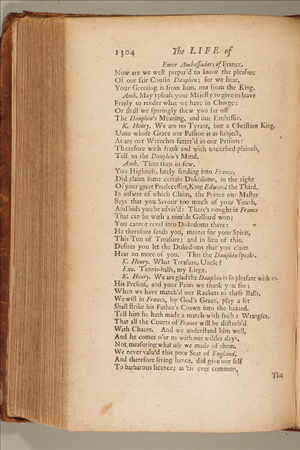 1304 The LIFE of
Enter Ambassadors of France.
Now are we well prepar'd to know the pleasure
Of our fair Cousin Dauphin; for we hear,
Your Greeting is from him, not from the King.
Amb. May't please your Majesty to give us leave
Freely to render what we have in Charge:
Or shall we sparingly shew you far off
The Dauphin's Meaning, and our Embassie.
K. Henry. We are no Tyrant, but a Christian King,
Unto whose Grace our Passion is as subject,
As are our Wretches fetter'd in our Prisons:
Therefore with frank and with uncurbed plainess,
Tell us the Dauphin's Mind.
Amb. Thus then in few.
You Highness, lately sending into France,
Did claim some certain Dukedoms, in the right
Of your great Predecessor, King Edward the Third.
In answer of which Claim, the Prince our Master
Says that you Savour too much of your Youth,
And bids you be advis'd: There's nought in France
That can be with a nimble Galliard won;
You cannot revel into Dukedoms there:
He therefore sends you, meeter for your Spirit,
This Tun of Treasure; and in lieu of this,
Desires you let the Dukedoms that you claim
Hear no more of you. This the Dauphin speaks.
K. Henry. What Treasure, Uncle?
Exe. Tennis-balls, my Liege.
K. Henry. We are glad the Dauphin is so pleasant with us.
His Present, and your Pains we thank you for;
When we have match'd our Rackets to these Balls,
We will in France, by God's Grace, play a set
Shall strike his Father's Crown into the hazard.
Tell him he hath made a match with such a Wrangler,
That all the Courts of France will be disturb'd
With Chaces. And we understand him well,
And he comes o'er us with our wilder days,
Not measuring what use we made of them.
We never valu'd this poor Seat of England,
And therefore living hence, did give our self
To barbarous licence; as 'tis ever common,
That